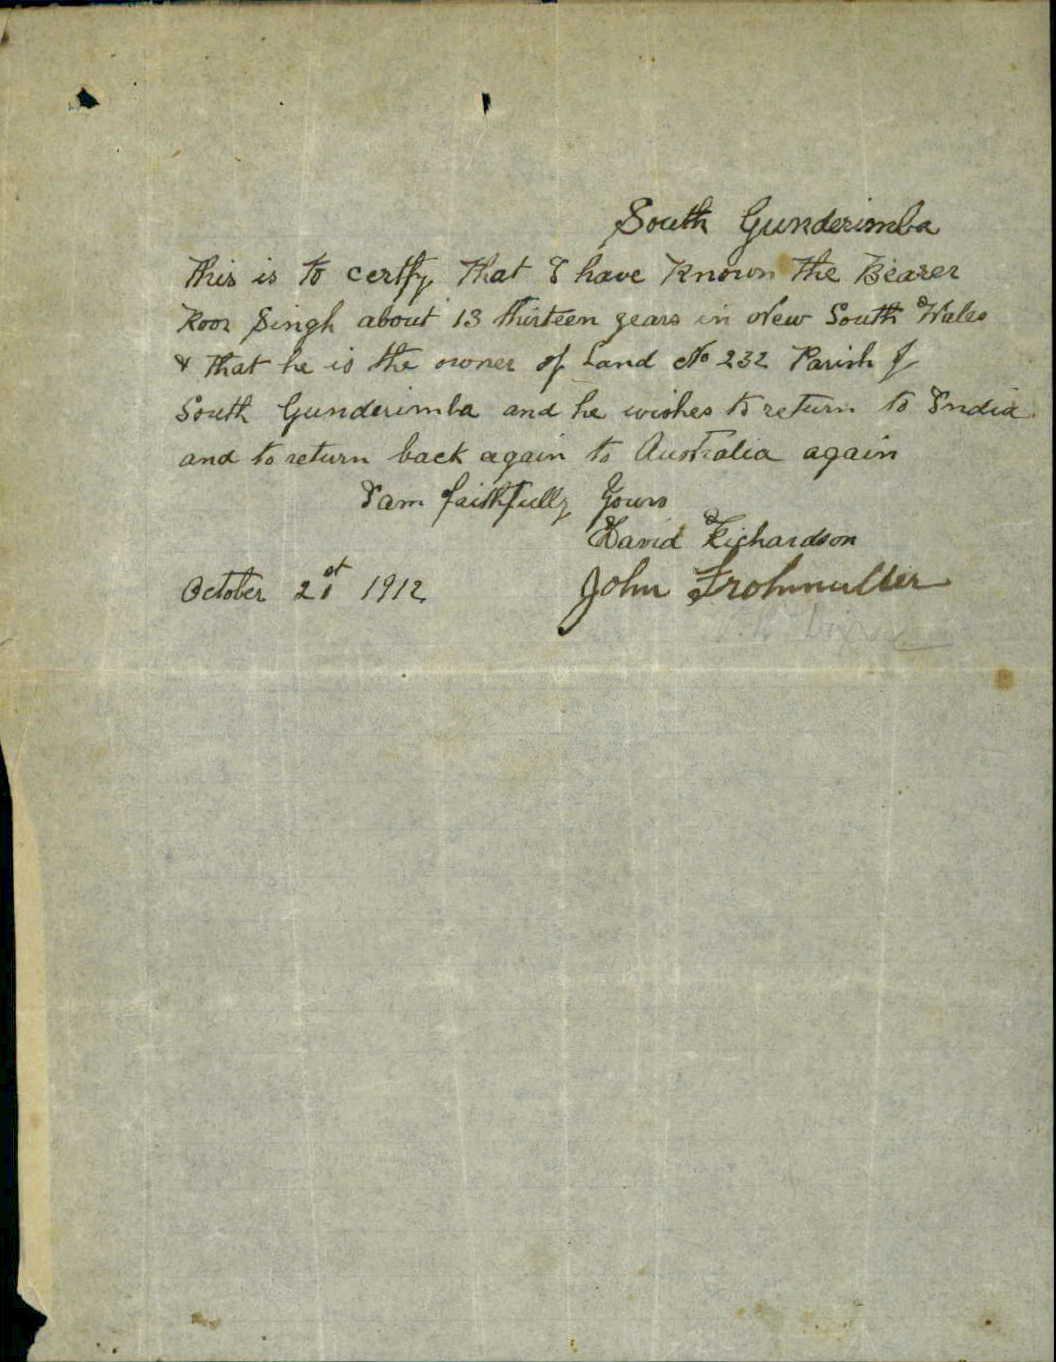 South Gunderimba
This is to certfy that I have Known the Bearer
Koor Singh about 13 thirteen years in New South Wales
& that he is the owner of Land No 232 Parish of
South Gunderimba and he wishes to return to India
and to return back again to Australia again
I am faithfully Yours
David Richardson
October 21st 1912 John Frohmuller